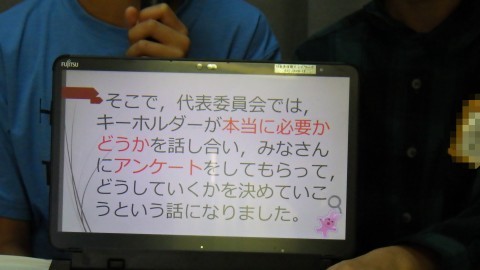 FUJITSU
そこで，代表委員会では，
キーホルダーが本当に必要か
どうかを話し合い，みなさん
にアンケートをしてもらって，
どうしていくかを決めていこ
うという話になりました。